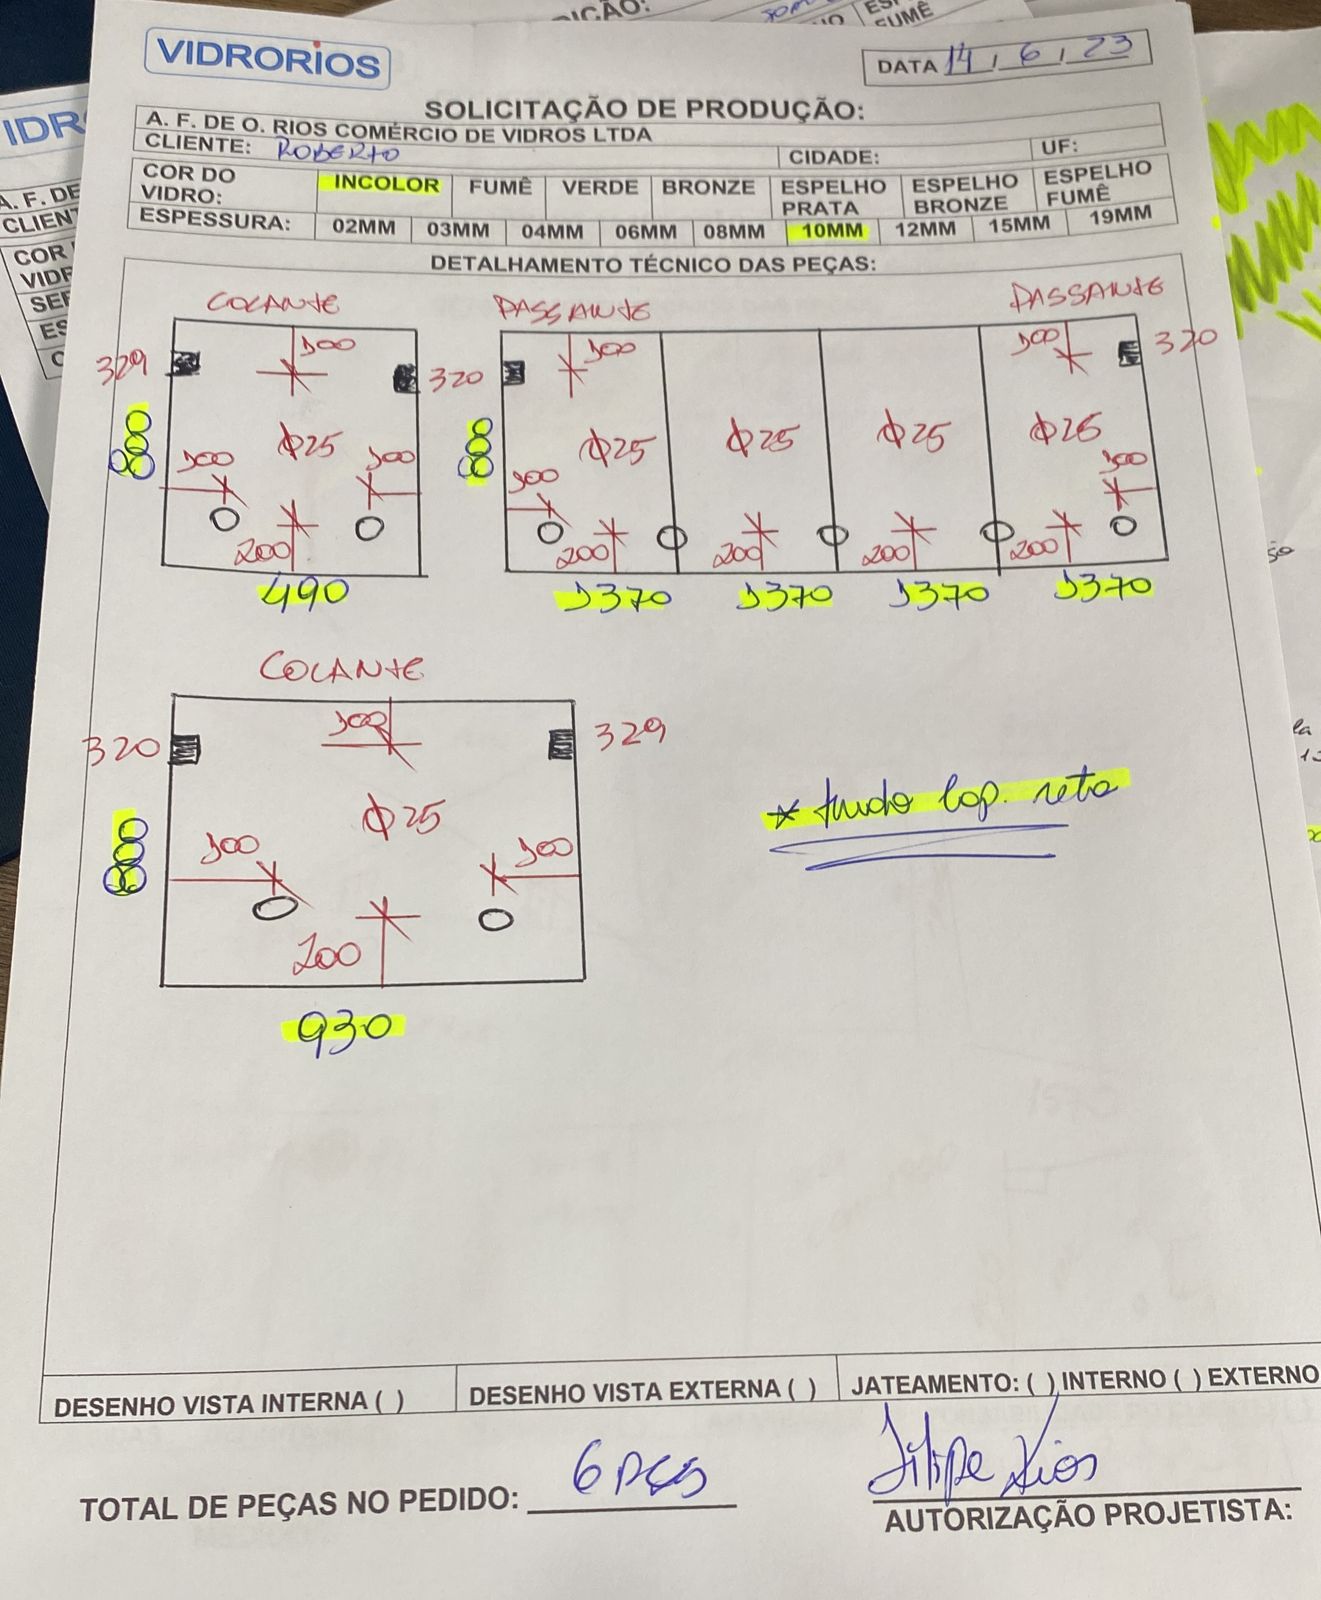 VIDRORIOS
DATA 14 / 6 / 23
SOLICITAÇÃO DE PRODUÇÃO:
A. F. DE O. RIOS COMÉRCIO DE VIDROS LTDA
CLIENTE: ROBERTO CIDADE: UF:
COR DO VIDRO: INCOLOR FUMÊ VERDE BRONZE ESPELHO PRATA ESPELHO BRONZE ESPELHO FUMÊ
ESPESSURA: 02MM 03MM 04MM 06MM 08MM 10MM 12MM 15MM 19MM
DETALHAMENTO TÉCNICO DAS PEÇAS:
COLANTE PASSANTE PASSANTE
100 100 100
329 320 320
Φ25 Φ25 Φ25 Φ25 Φ25
100 100 100 100
200 200 200 200 200
490 1370 1370 1370 1370
COLANTE
100
320 329
Φ25
100 100
200
930
* tudo lap. reto
DESENHO VISTA INTERNA ( ) DESENHO VISTA EXTERNA ( ) JATEAMENTO: ( ) INTERNO ( ) EXTERNO
TOTAL DE PEÇAS NO PEDIDO: 6 PÇS
Filipe Rios
AUTORIZAÇÃO PROJETISTA: